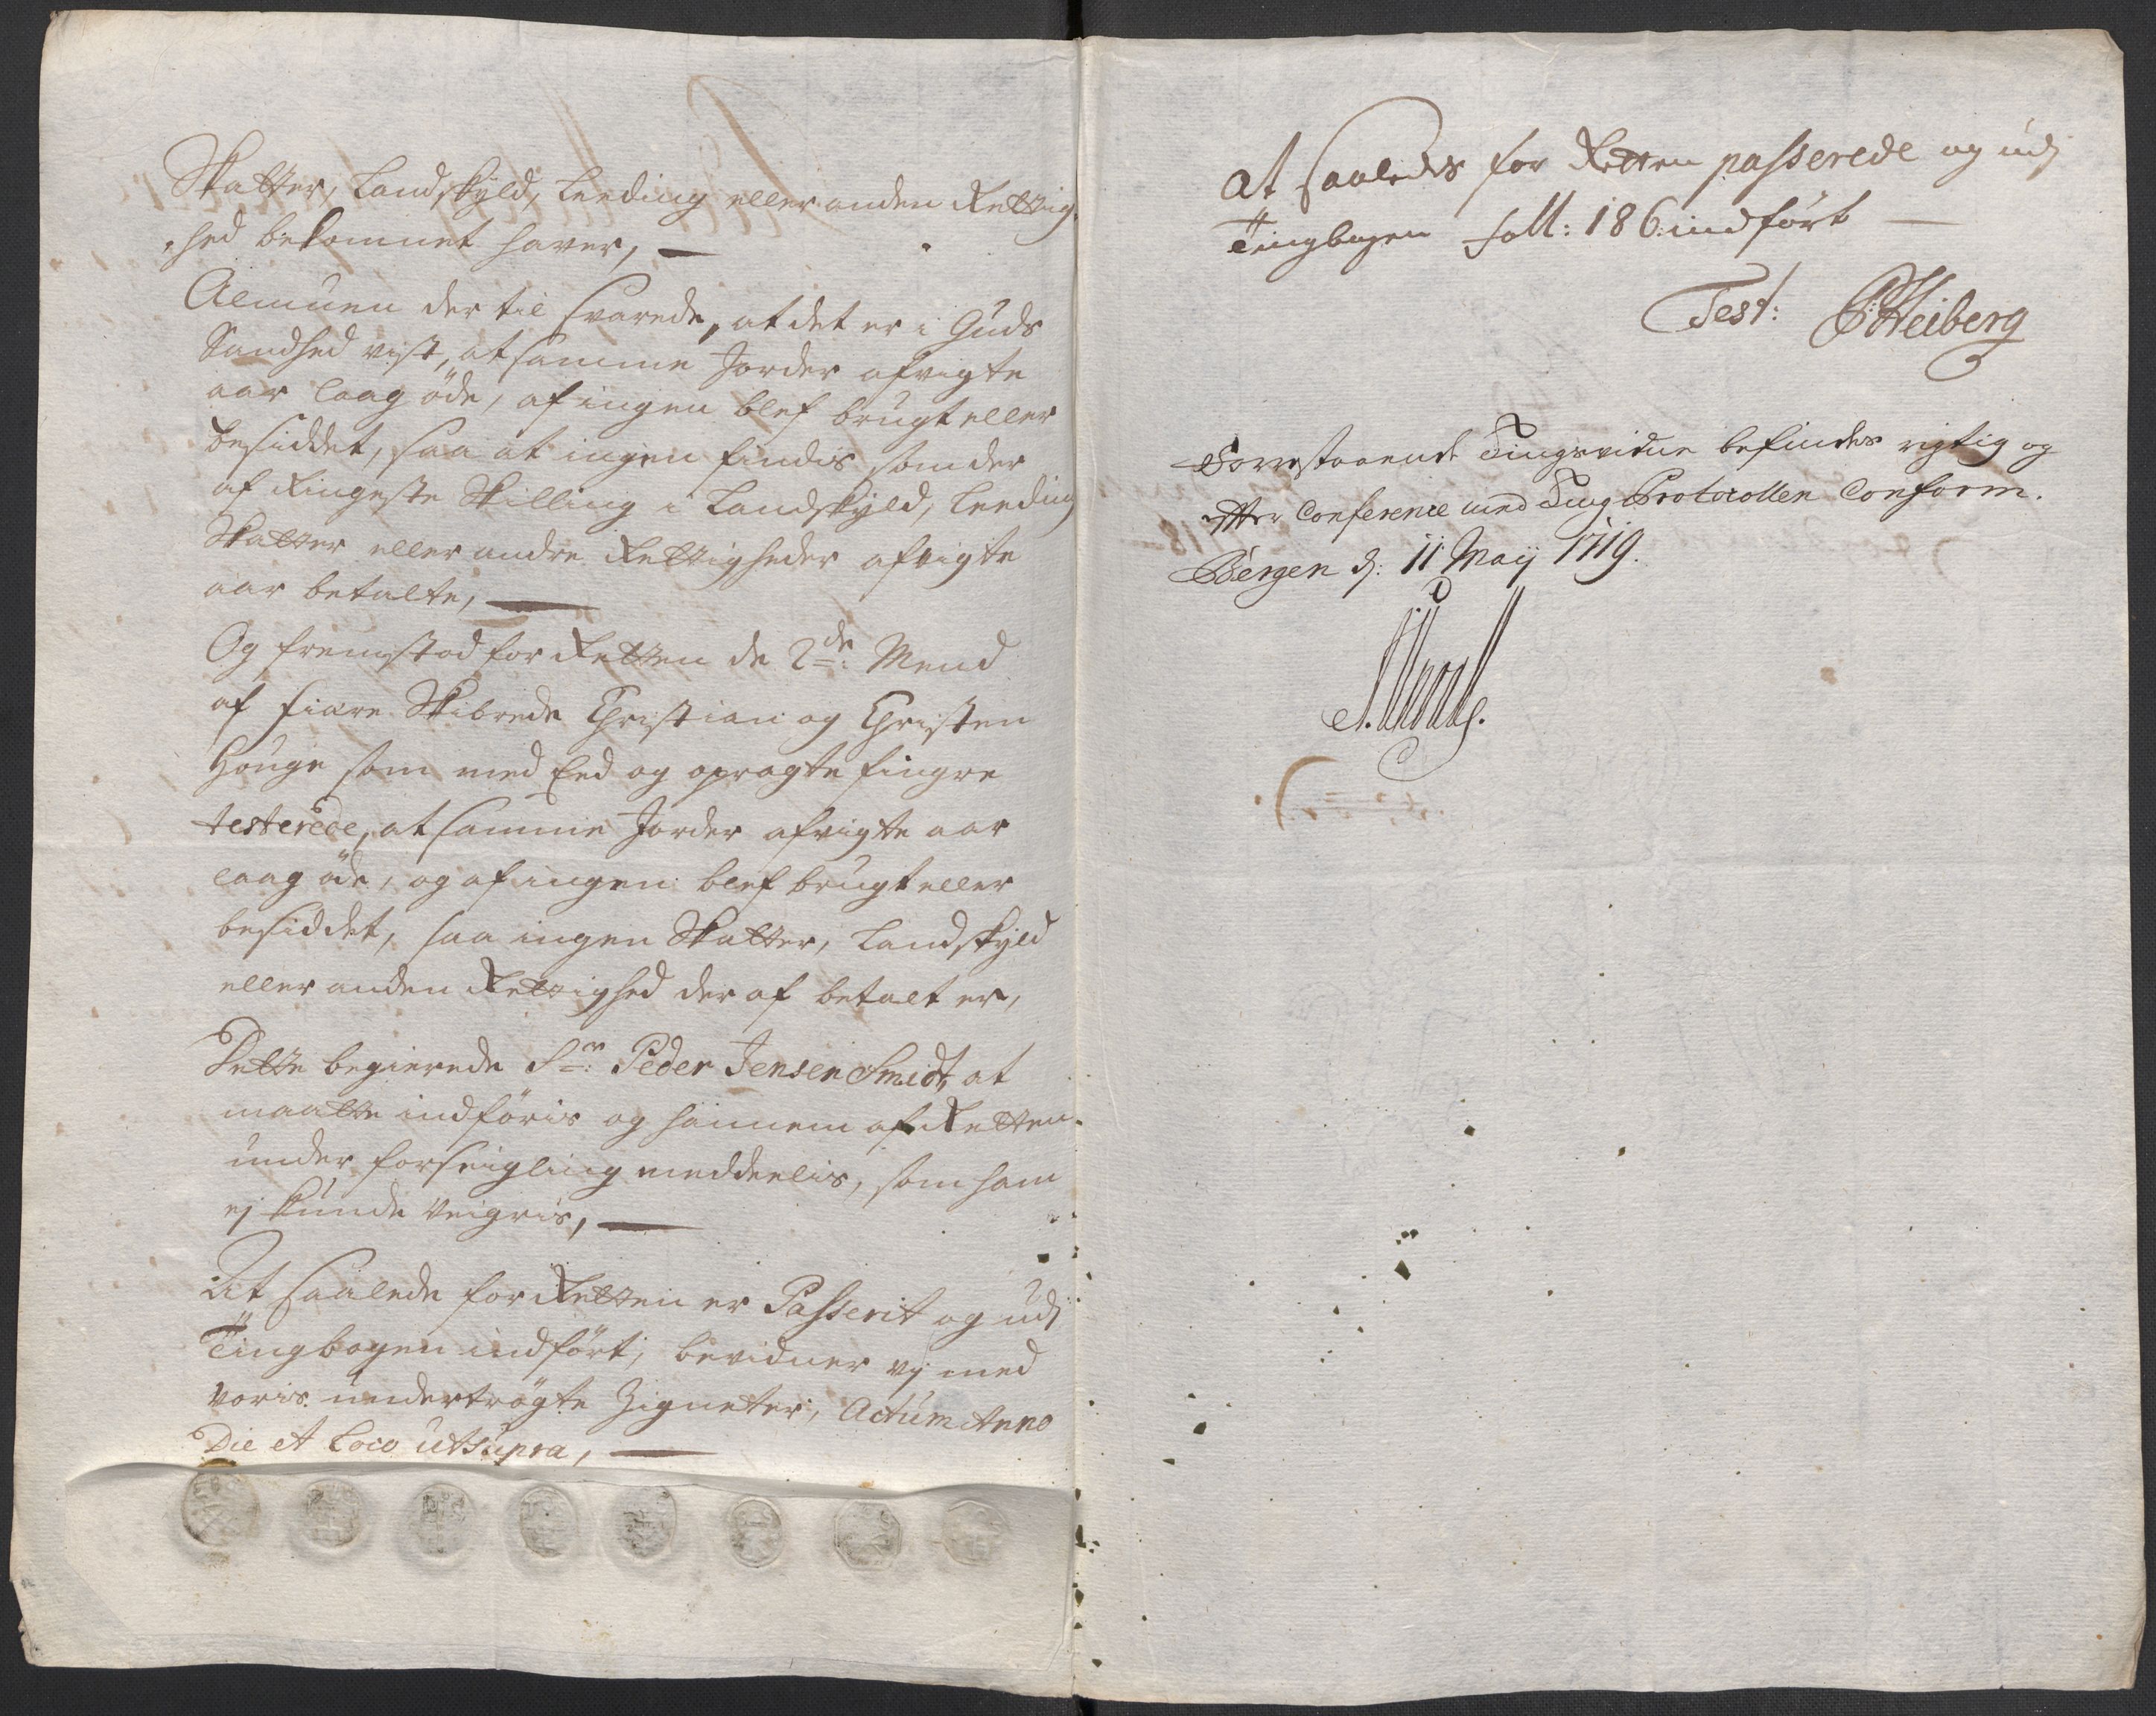 Skatter, Landskyld, Leeding eller anden Rettig
-hed bekommet haver,
Almuen der til svarede, at det er i Guds
Sandhed vist, at samme Jorder afvigte
aar laag öde, af ingen blef brugt eller
besiddet, saa at ingen findis som der
af Ringeste Skilling i Landskyld, Leeding
Skatter eller andre Rettigheder afvigte
aar betalte,
Og fremstod for Retten de 2de: Mend
af fiære Skibrede Christian og Christen
Houge som med Eed og opragte fingre
testerede, at samme Jorder afvigte aar
laag öde, og af ingen blef brugt eller
besiddet, saa ingen Skatter, Landskyld
eller anden Rettighed der af betalt er,
Dette begierede Sr: Peder Jensen Smidt, at
maatte indföris og hannem af Retten
under forseigling meddeelis, som ham
ej kunde Veigris,
At saalede for Retten er Passerit og udj
Tingbogen indfört, bevidner vj med
voris undertrögte Zigneter, Actum Anno
Die et Loco utsupra,
at saaledes for Retten passerede og udj
Tingbogen foll: 186 indfört
Test: Heiberg
Forrestaaende Tingsvidne befindes rigtig og
efter Conference med Ting Protocollen Conform.
Bergen d: 11 Maij 1719.